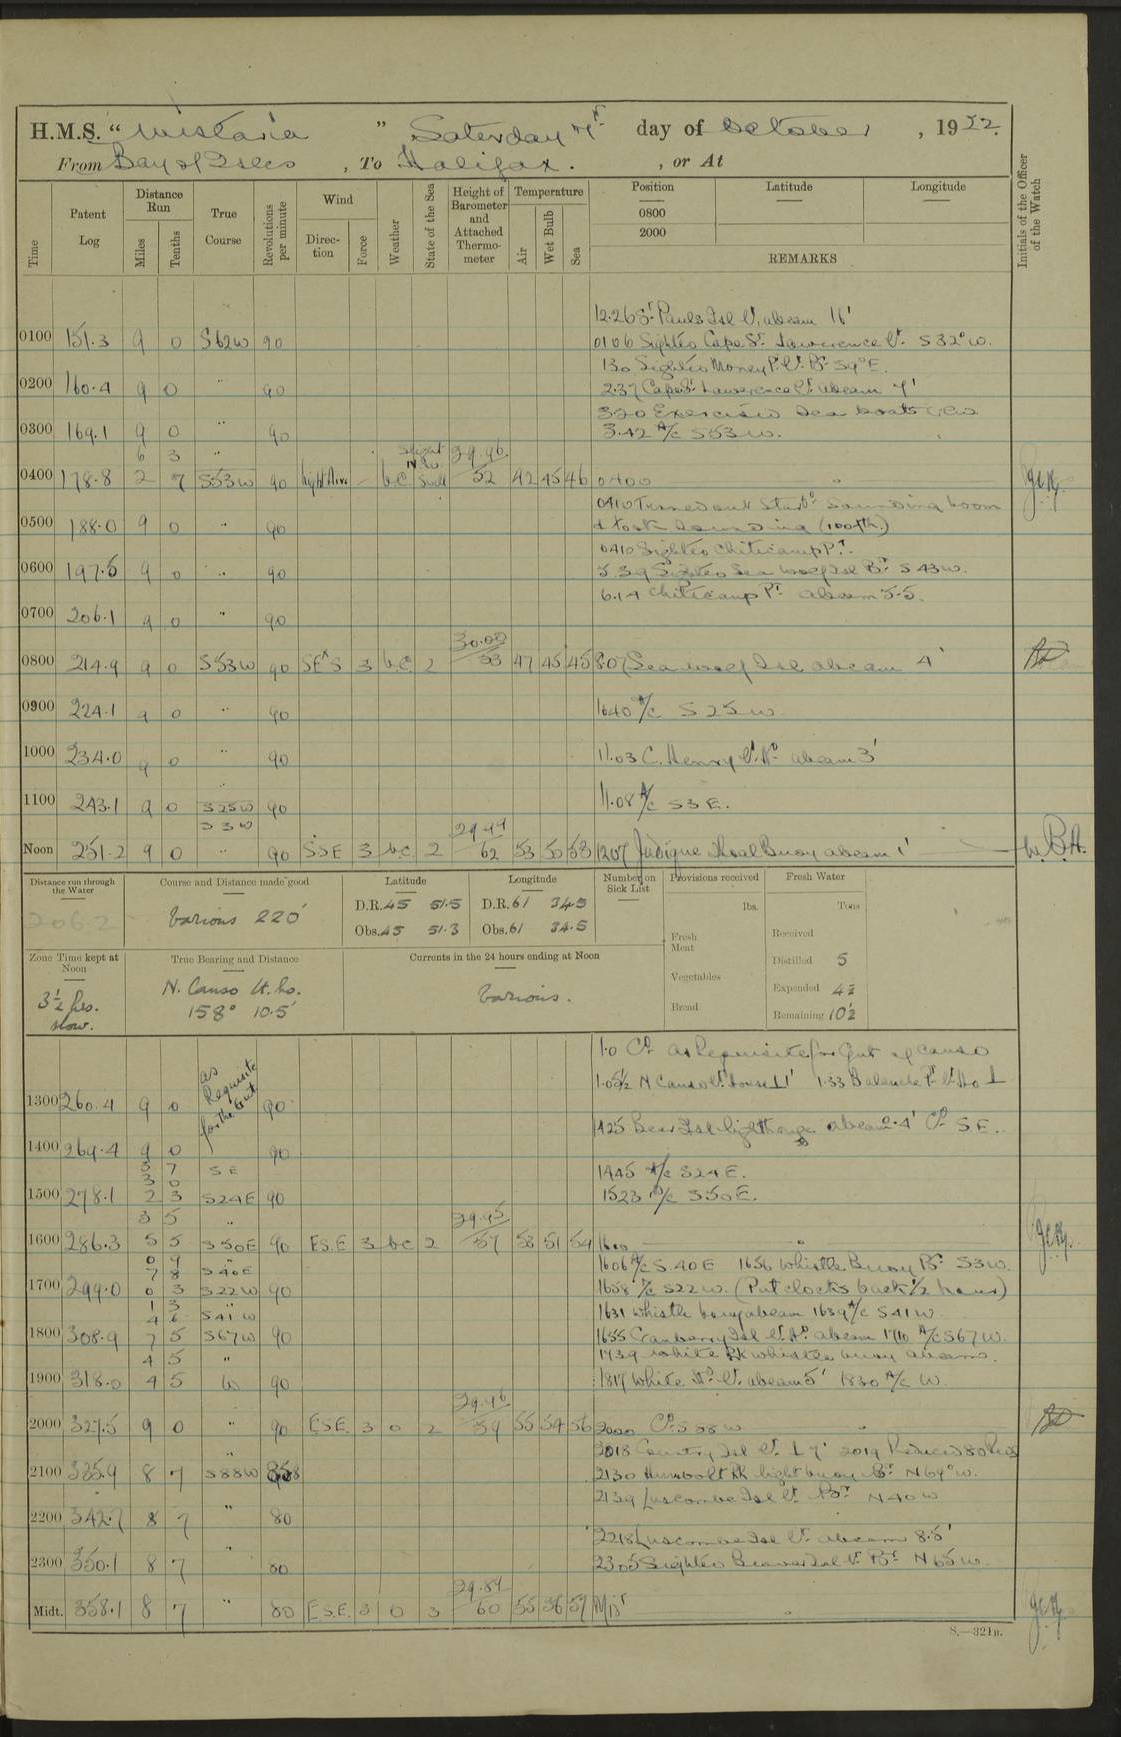 H.M.S. "Wistaria" Saturday 7th day of October, 1922.
From Bay of Isles, To Halifax., or At
Time
Patent Log
Distance Run
Miles
Tenths
True Course
Revolutions per minute
Wind
Direction
Force
Weather
State of the Sea
Height of Barometer and Attached Thermometer
Temperature
Air
Wet Bulb
Sea
Position
Latitude
Longitude
0800
2000
REMARKS
Initials of the Officer of the Watch
12.26 St Pauls Isl Lt abeam 16'
0100 151.3 9 0 S62W 90 0106 Sighted Cape St Lawerence Lt S 32° W.
130 Sighted Money Pt Lt Bg S9°E.
0200 160.4 9 0 " 90 2.37 Cape St Lawerence Lt abeam 7'
320 Exercised Sea boats crew
0300 169.1 9 0 " 90 3.42 A/c S53W.
6 3 "
0400 178.8 2 7 S53W 90 light Airs - bc Slight N.W. Swell 29.96 52 42 45 46 0400 "
0410 Turned out Starbd Sounding boom
0500 188.0 9 0 " 90 & took Sounding (100fth)
0410 Sighted Chiticamp Pt.
0600 197.5 9 0 " 90 5.39 Sighted Sea Woolf Isl Bg S 43W.
6.14 Chiticamp Pt abeam 5.5.
0700 206.1 9 0 " 90
0800 214.9 9 0 S53W 90 SE'S 3 bc 2 30.00 53 47 45 45 8.07 Sea woolf Isl abeam 4'
0900 224.1 9 0 " 90 1040 A/c S 25 W
1000 234.0 9 0 " 90 11.03 C. Henry Lt Ho abeam 3'
1100 243.1 9 0 S25W 90 11.08 A/c S3E.
S3W 29.94
Noon 251.2 9 0 " 90 SSE 3 bc 2 62 53 50 53 1207 Judique Shoal Buoy abeam 1' W.B.A.
Distance run through the Water
206.2
Course and Distance made good
Various 220'
Latitude
D.R. 45 51.5
Obs. 45 51.3
Longitude
D.R. 61 34.5
Obs. 61 34.5
Number on Sick List
Provisions received
lbs.
Fresh Meat
Vegetables
Bread
Fresh Water
Tons
Received
Distilled 5
Expended 4½
Remaining 10½
Zone Time kept at Noon
3½ hrs. slow.
True Bearing and Distance
N. Canso Lt. ho.
158° 10.5'
Currents in the 24 hours ending at Noon
Various.
1.0 Co as Requisite for Gut of Canso
1.05½ N Canso Lt house ⊥ 1' 1.33 Balache Pt Lt Ho ⊥
1300 260.4 9 0 as Requisite for the Gut 90
1425 Bear Isl lighthouse abeam 0.4' Co SE.
1400 269.4 9 0 90
5 7 SE 1445 A/c S24E.
3 0
1500 278.1 2 3 S24E 90 1523 A/c S50E.
3 5 " 29.95
1600 286.3 5 5 S50E 90 ESE 3 bc 2 57 53 51 54 1600 "
0 9 " 1606 A/c S.40E 1656 Whistle Buoy Bg S3W.
7 8 S40E
1700 299.0 0 3 S22W 90 1658 A/c S22W. (Put clocks back ½ hour)
1 3 " 1631 Whistle buoy abeam 1639 A/c S41W.
4 6 S41W
1800 308.9 7 5 S67W 90 1655 Cranberry Isl Lt Ho abeam 1710 A/c S67W.
4 5 " 1739 White Rk whistle buoy abeam.
1900 318.0 4 5 W 90 1817 White Hd Lt abeam 5' 1830 A/c W.
29.96
2000 327.5 9 0 " 90 ESE 3 0 2 59 55 54 56 2000 Co S88W "
" 2018 Country Isl Lt ⊥ 7' 2019 Reduced 80 Revs
2100 335.9 8 7 S88W 2130 Humbolt Rk light buoy Bg N69°W.
2139 Luscombe Isl Lt Bg N40W
2200 342.7 8 7 " 80
2218 Luscombe Isl Lt abeam 8.5'
2300 350.1 8 7 " 80 2305 Sighted Beaver Isl Lt Bg N65W.
29.84
Midt. 358.1 8 7 " 80 ESE. 3 0 3 60 55 56 57 Mid't
S.—321B.